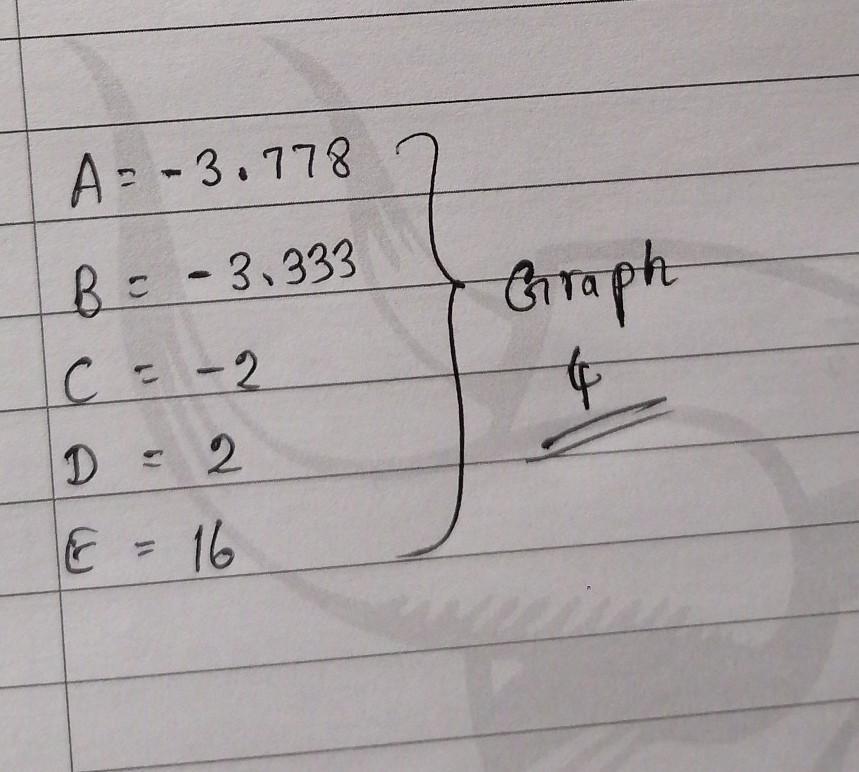 A = -3.778
B = -3.333
C = -2
D = 2
E = 16
Graph
4